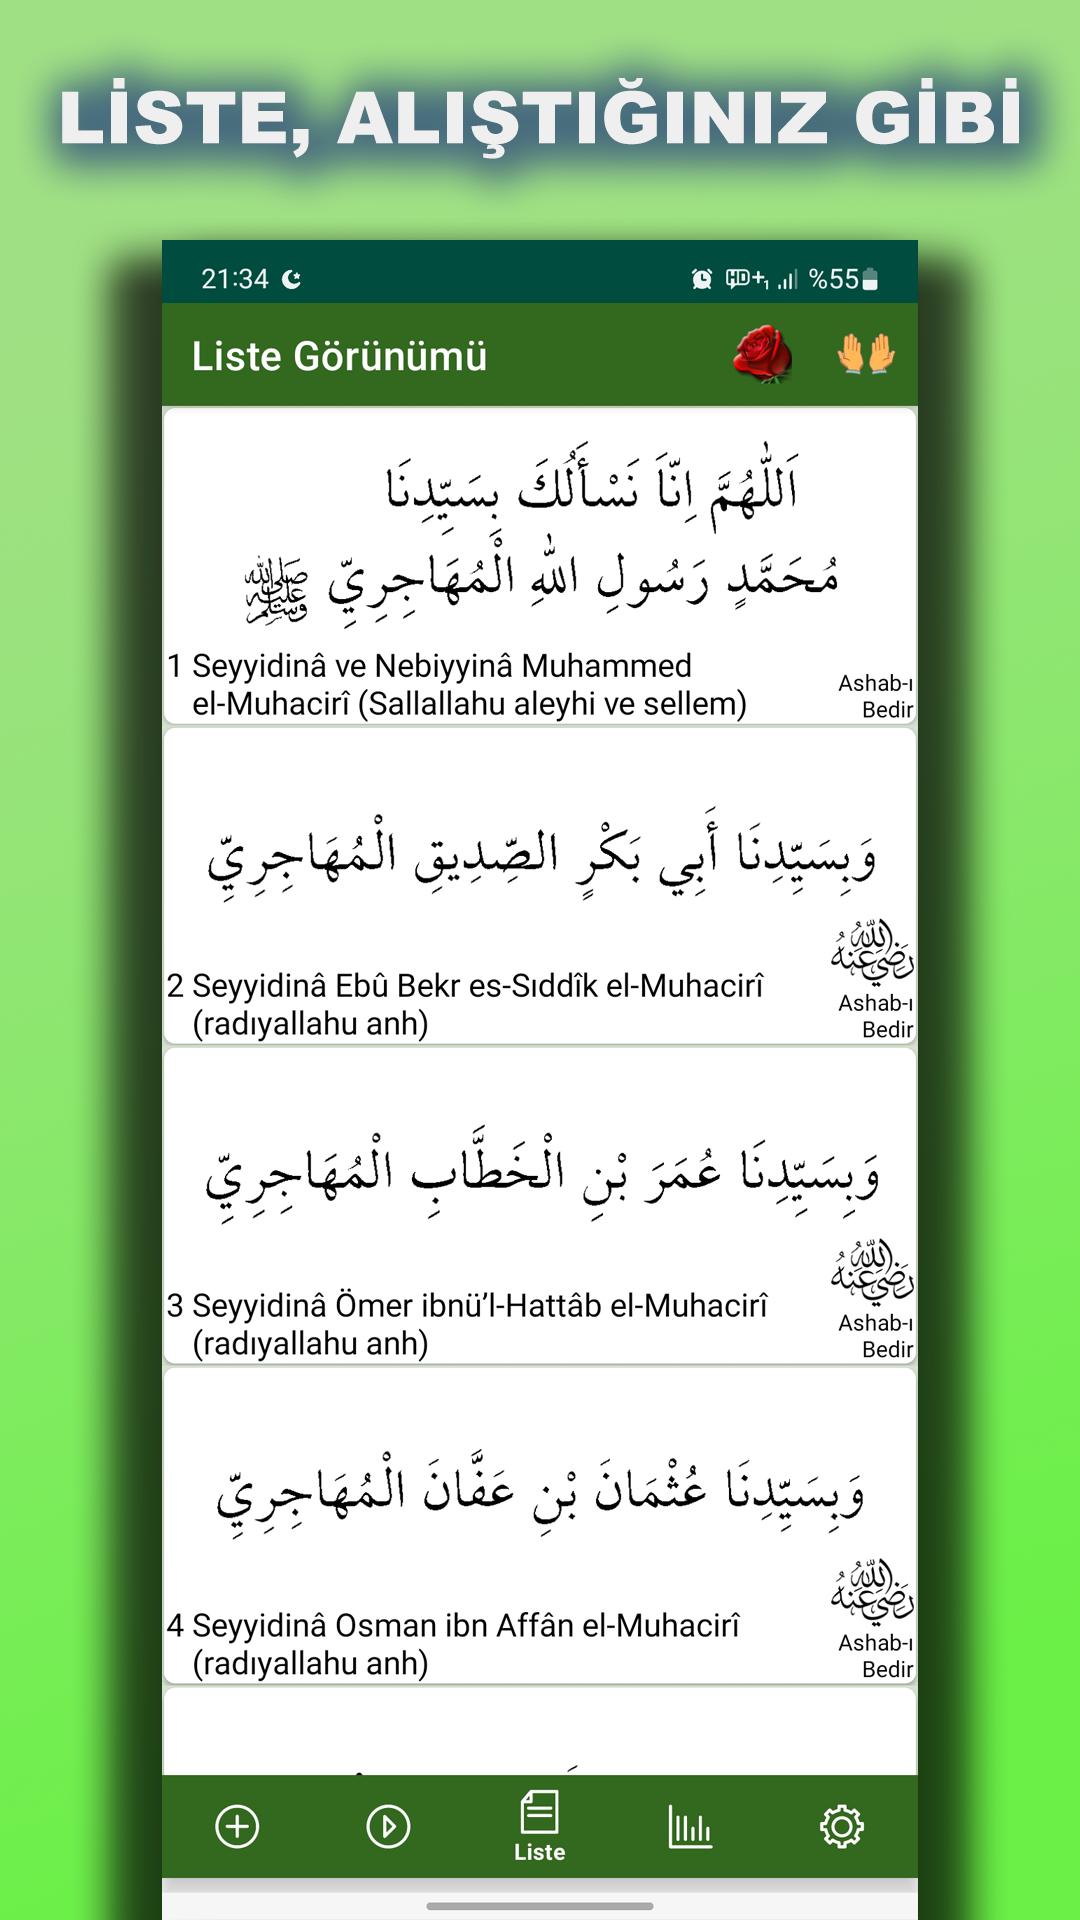 LİSTE, ALIŞTIĞINIZ GİBİ
21:34
HD+1 %55
Liste Görünümü
اَللّٰهُمَّ اِنَّا نَسْأَلُكَ بِسَيِّدِنَا
مُحَمَّدٍ رَسُولِ اللهِ الْمُهَاجِرِيِّ ﷺ
1 Seyyidinâ ve Nebiyyinâ Muhammed
el-Muhacirî (Sallallahu aleyhi ve sellem)
Ashab-ı
Bedir
وَبِسَيِّدِنَا أَبِي بَكْرٍ الصِّدِيقِ الْمُهَاجِرِيِّ
رَضِيَ اللّٰهُ عَنْهُ
2 Seyyidinâ Ebû Bekr es-Sıddîk el-Muhacirî
(radıyallahu anh)
Ashab-ı
Bedir
وَبِسَيِّدِنَا عُمَرَ بْنِ الْخَطَّابِ الْمُهَاجِرِيِّ
رَضِيَ اللّٰهُ عَنْهُ
3 Seyyidinâ Ömer ibnü’l-Hattâb el-Muhacirî
(radıyallahu anh)
Ashab-ı
Bedir
وَبِسَيِّدِنَا عُثْمَانَ بْنِ عَفَّانَ الْمُهَاجِرِيِّ
رَضِيَ اللّٰهُ عَنْهُ
4 Seyyidinâ Osman ibn Affân el-Muhacirî
(radıyallahu anh)
Ashab-ı
Bedir
Liste